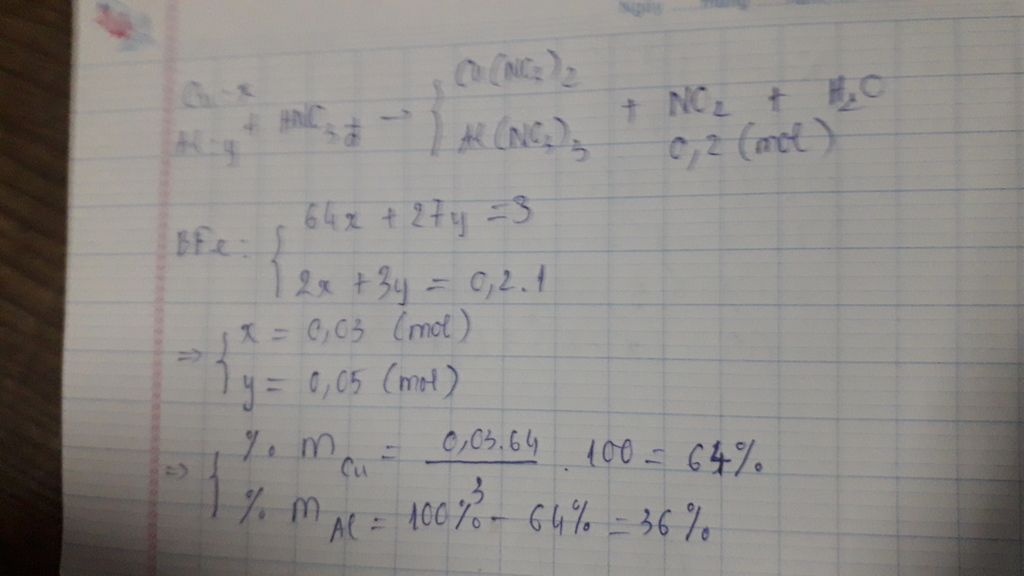 Cu - x
Al - y + HNO3 đ → { Cu(NO3)2
Al(NO3)3 + NO2 + H2O
0,2 (mol)
BTe: { 64x + 27y = 3
2x + 3y = 0,2.1
⇒ { x = 0,03 (mol)
y = 0,05 (mol)
⇒ { % m Cu = 0,03.64 / 3 . 100 = 64%
% m Al = 100% - 64% = 36%